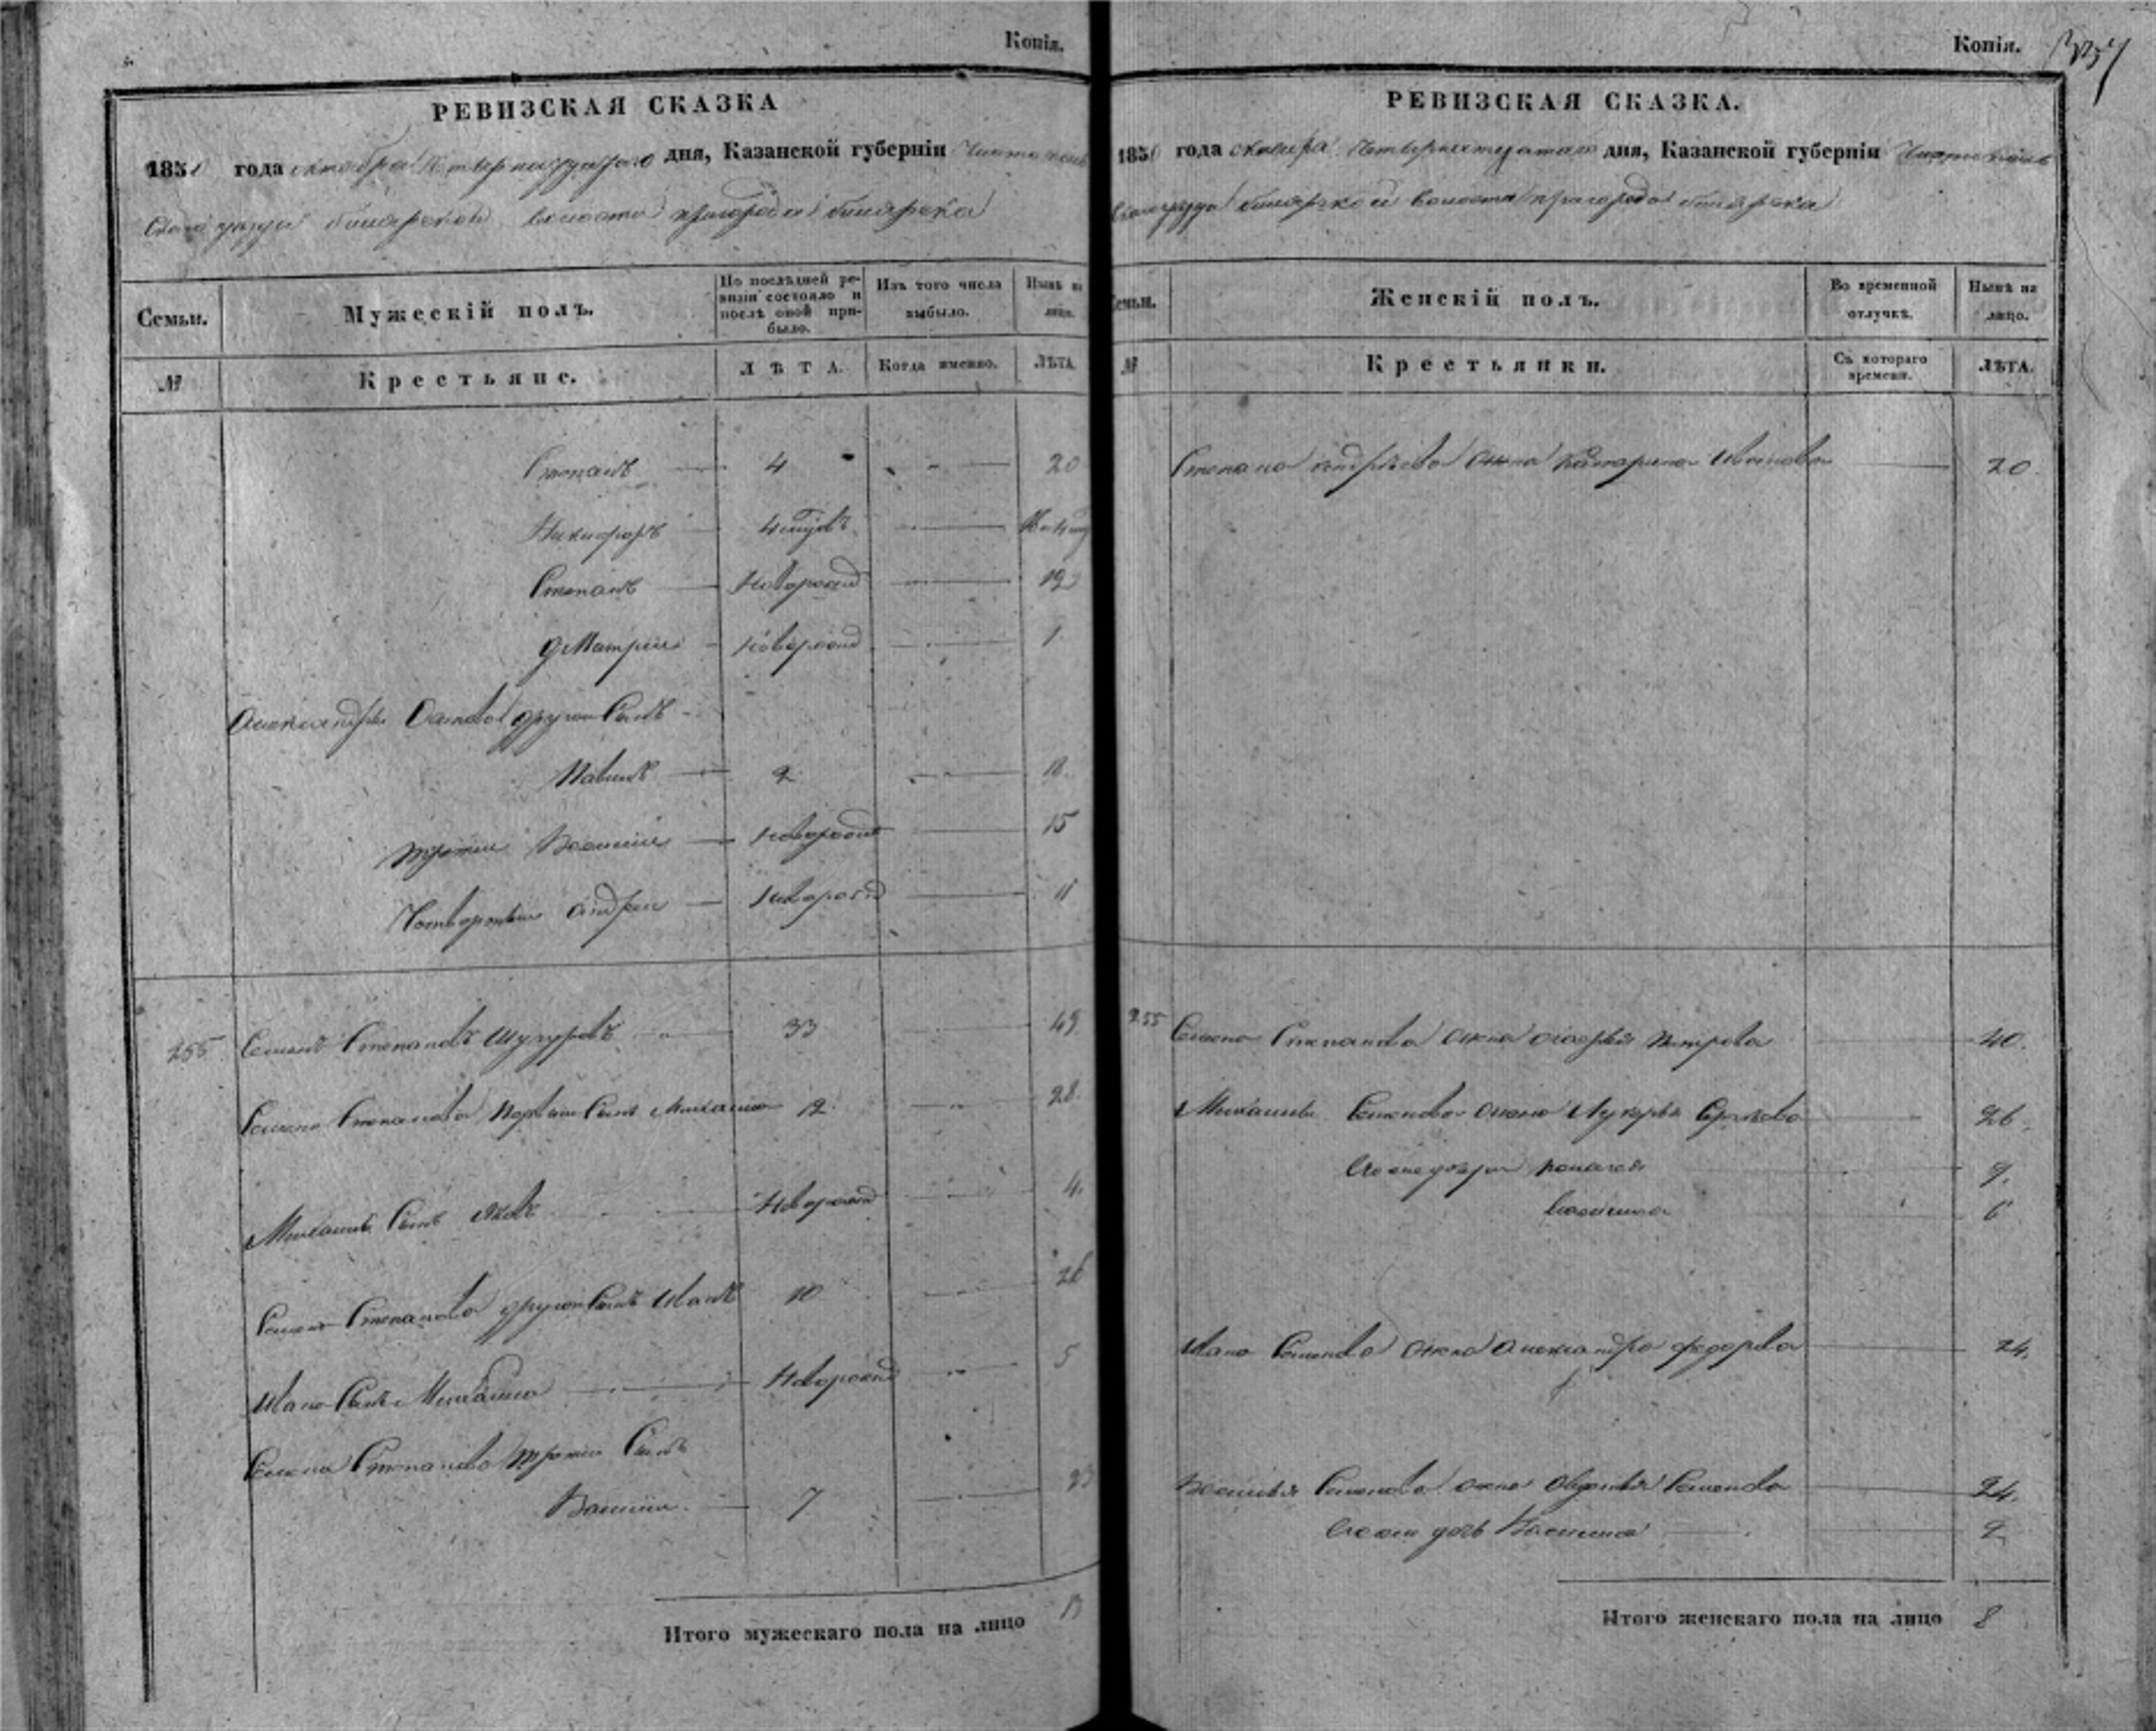 Копія.
РЕВИЗСКАЯ СКАЗКА
1850 года октября Четырнадцатаго дня, Казанской губерніи Чистополь
скаго уезда билярской волости пригорода билярска
Семьи.
Мужескій полъ.
По послѣдней ре-
визіи состояло и
послѣ оной при-
было.
Изъ того числа
выбыло.
Нынѣ на
лицо.
№
Крестьяне.
ЛѢТА.
Когда именно.
ЛѢТА
Степанъ 4 20
Никифоръ
Степанъ Новорожд 12
Дмитрий Новорожд 1
Александра другой Сынъ
Павилъ 2 18.
третий Василий Новорожд 15
Четвертый андрей Новорожд 11
255 Семенъ Степановъ 33 49.
Семена Степанова Первый Сынъ Михайла 12. 28.
Михайлы Сынъ Яковъ Новорожд 4.
Семена Степанова другой Сынъ Иванъ 10 26
Ивана Сынъ Михайла Новорожд 5
Семена Степанова третий Сынъ
Василий 7 23
Итого мужескаго пола на лицо 13
Копія.
РЕВИЗСКАЯ СКАЗКА.
1850 года октября Четырнадцатаго дня, Казанской губерніи Чистополь
скаго уезда билярской волости пригорода билярска
Семьи.
Женскій полъ.
Во временной
отлучкѣ.
Нынѣ на
лицо.
№
Крестьянки.
Съ котораго
времени.
ЛѢТА.
Степана андреева жена Катарина Иванова 20.
255 Семена Степанова жена Петрова 40.
Михайлы Семенова жена Лукерья 26.
6
Ивана Семенова жена Александра федорова 24.
Василья Семенова жена Авдотья Семенова 24.
дочь 2
Итого женскаго пола на лицо 8